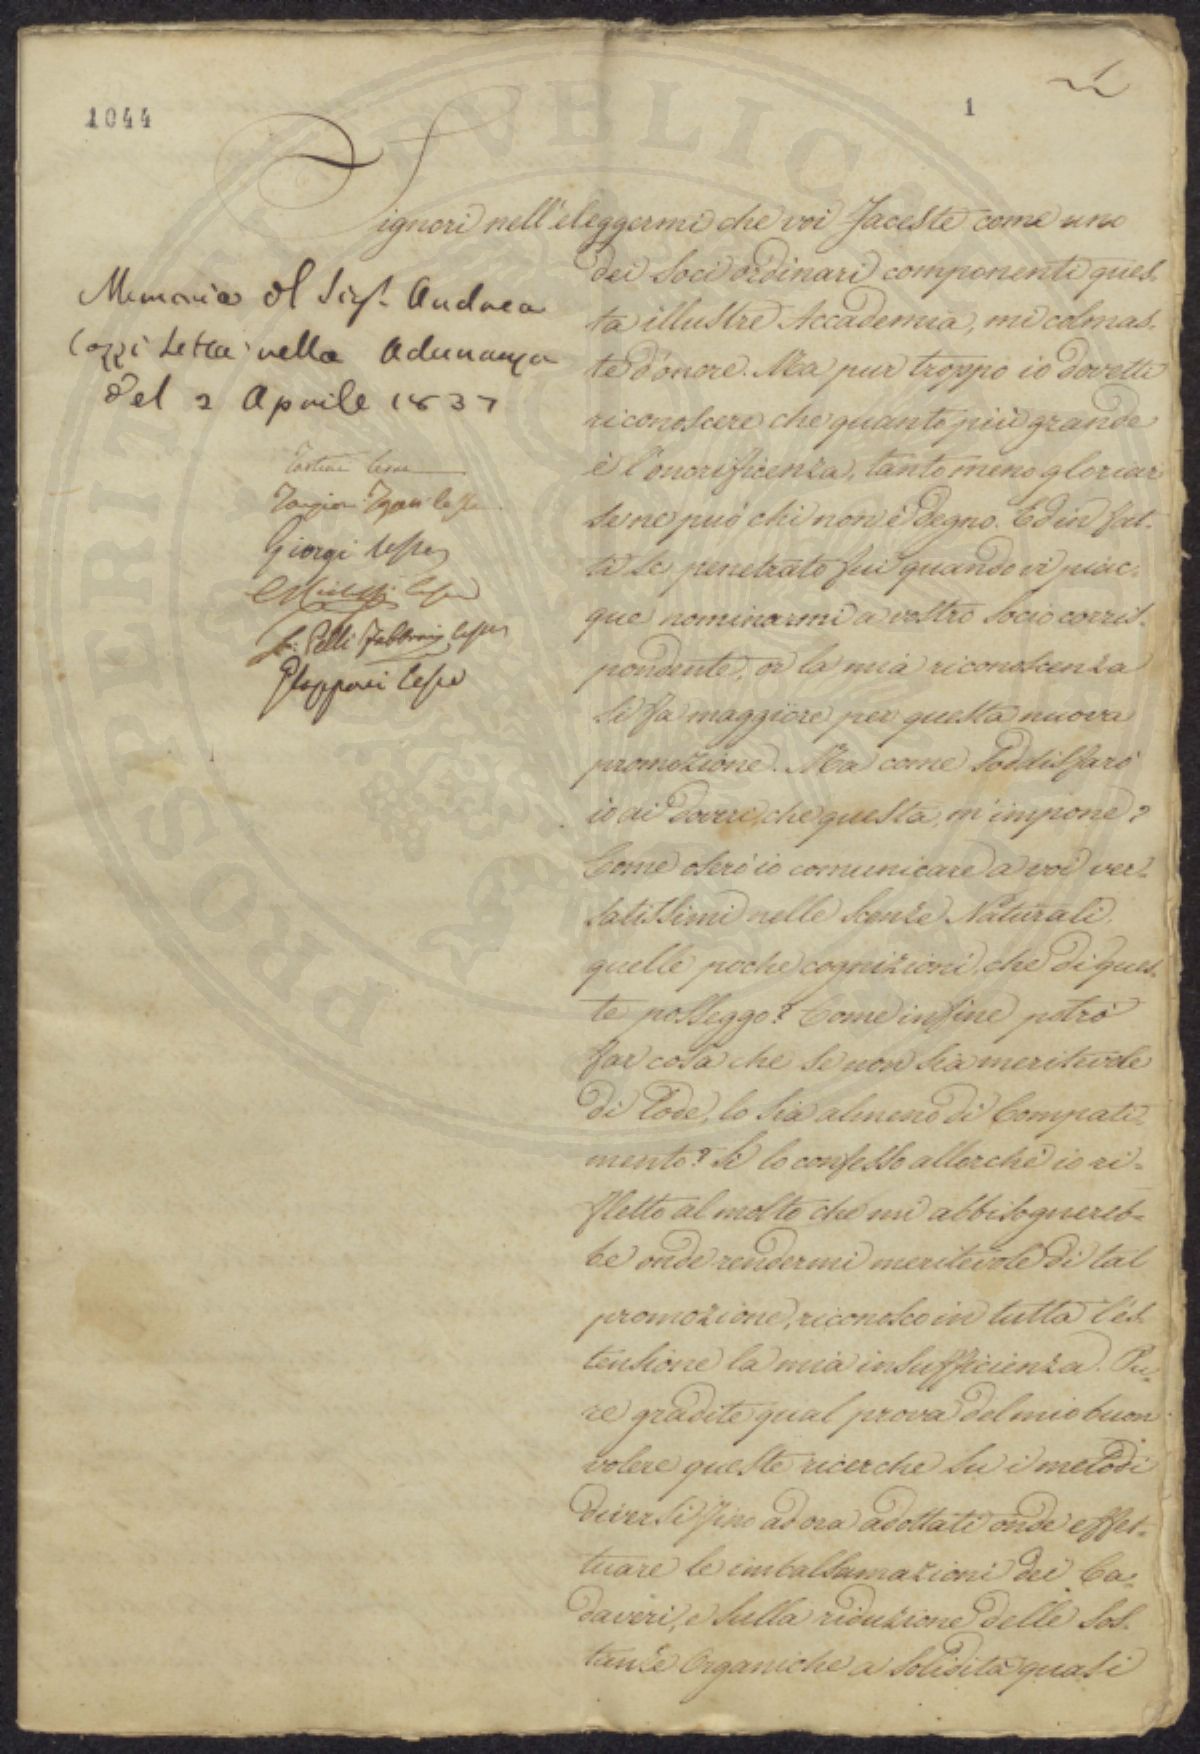 1044
1
Signori nell'eleggermi che voi faceste come uno
dei Soci ordinari componenti ques-
ta illustre Accademia, mi colmas-
te d'onore. Ma pur troppo io dovetti
riconoscere che quanto più grande
è l'onorificenza, tanto meno gloriar
se ne può chi non è degno. Ed in fat-
ti se penetrato fui quando vi piac-
que nominarmi a vostro Socio corris-
pondente, or la mia riconoscenza
si fa maggiore per questa nuova
promozione. Ma come soddisfarò
io ai doveri, che questa, m'impone?
Come oserò io comunicare a voi ver-
satissimi nelle Scenze Naturali
quelle poche cognizioni, che di ques-
te posseggo? Come infine potrò
far cosa che se non sia meritevole
di Lode, lo sia almeno di Compati-
mento? Si lo confesso allorchè io ri-
fletto al molto che mi abbisognereb-
be onde rendermi meritevole di tal
promozione, riconosco in tutta l'es-
tensione la mia insufficienza. Pu-
re gradite qual prova del mio buon
volere queste ricerche su i metodi
diversi fino ad ora adottati onde effet-
tuare le imbalsamazioni dei Ca-
daveri, e sulla riduzione delle Sos-
tanze Organiche a solidità quasi
Memoria del Sigr. Andrea
Cozzi Letta nella Adunanza
del 2 Aprile 1837
Giorgi
Pelli Fabbroni
PROSPERITÀ PVBLICA